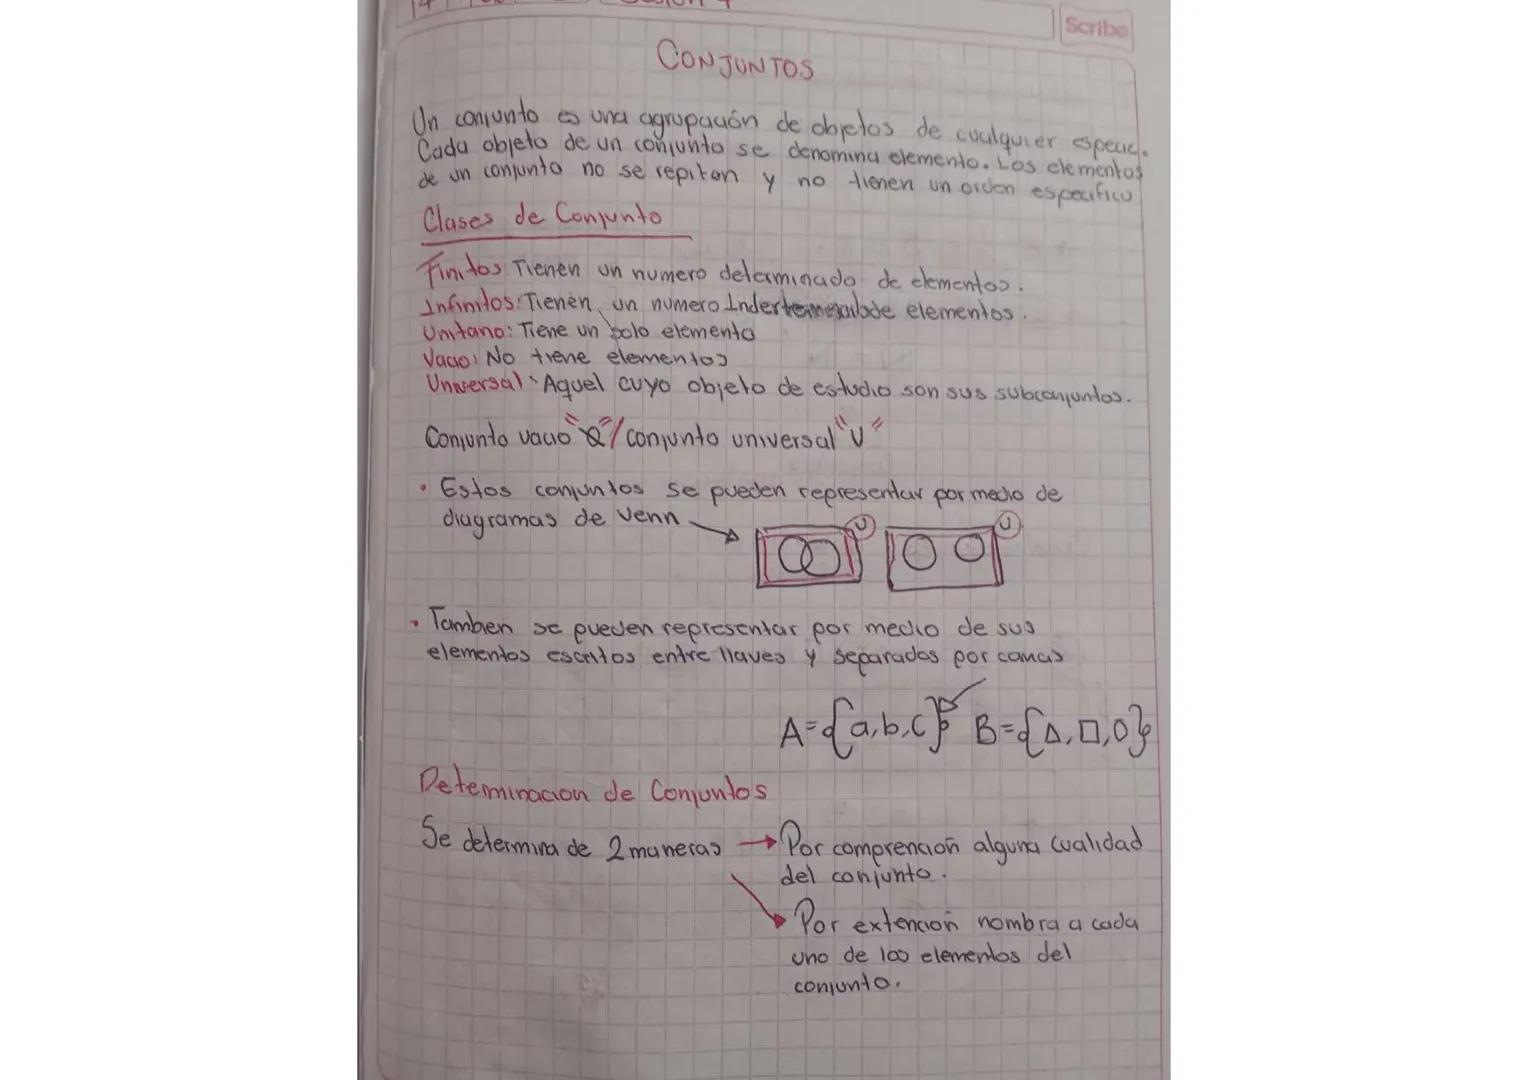 Scribe
CONJUNTOS
Un conjunto es una agrupación de objetos de cualquier especie.
Cada objeto de un conjunto se denomina elemento. Los elementos
de un conjunto no se repiten y no tienen un orden especifico
Clases de Conjunto
Finitos Tienen un numero determinado de elementos.
Infinitos: Tienen un numero de elementos.
Unitario: Tiene un solo elemento
Vacio: No tiene elementos
Universal: Aquel cuyo objeto de estudio son sus subconjuntos.
Conjunto vacio "Ø"/conjunto universal "U"
• Estos conjuntos se pueden representar por medio de
diagramas de Venn
U U
• Tambien se pueden representar por medio de sus
elementos escritos entre llaves y separados por comas
A={a,b,c} B={△,□,○}
Determinacion de Conjuntos
Se determina de 2 maneras → Por comprencion alguna cualidad
del conjunto.
Por extencion nombra a cada
uno de los elementos del
conjunto.